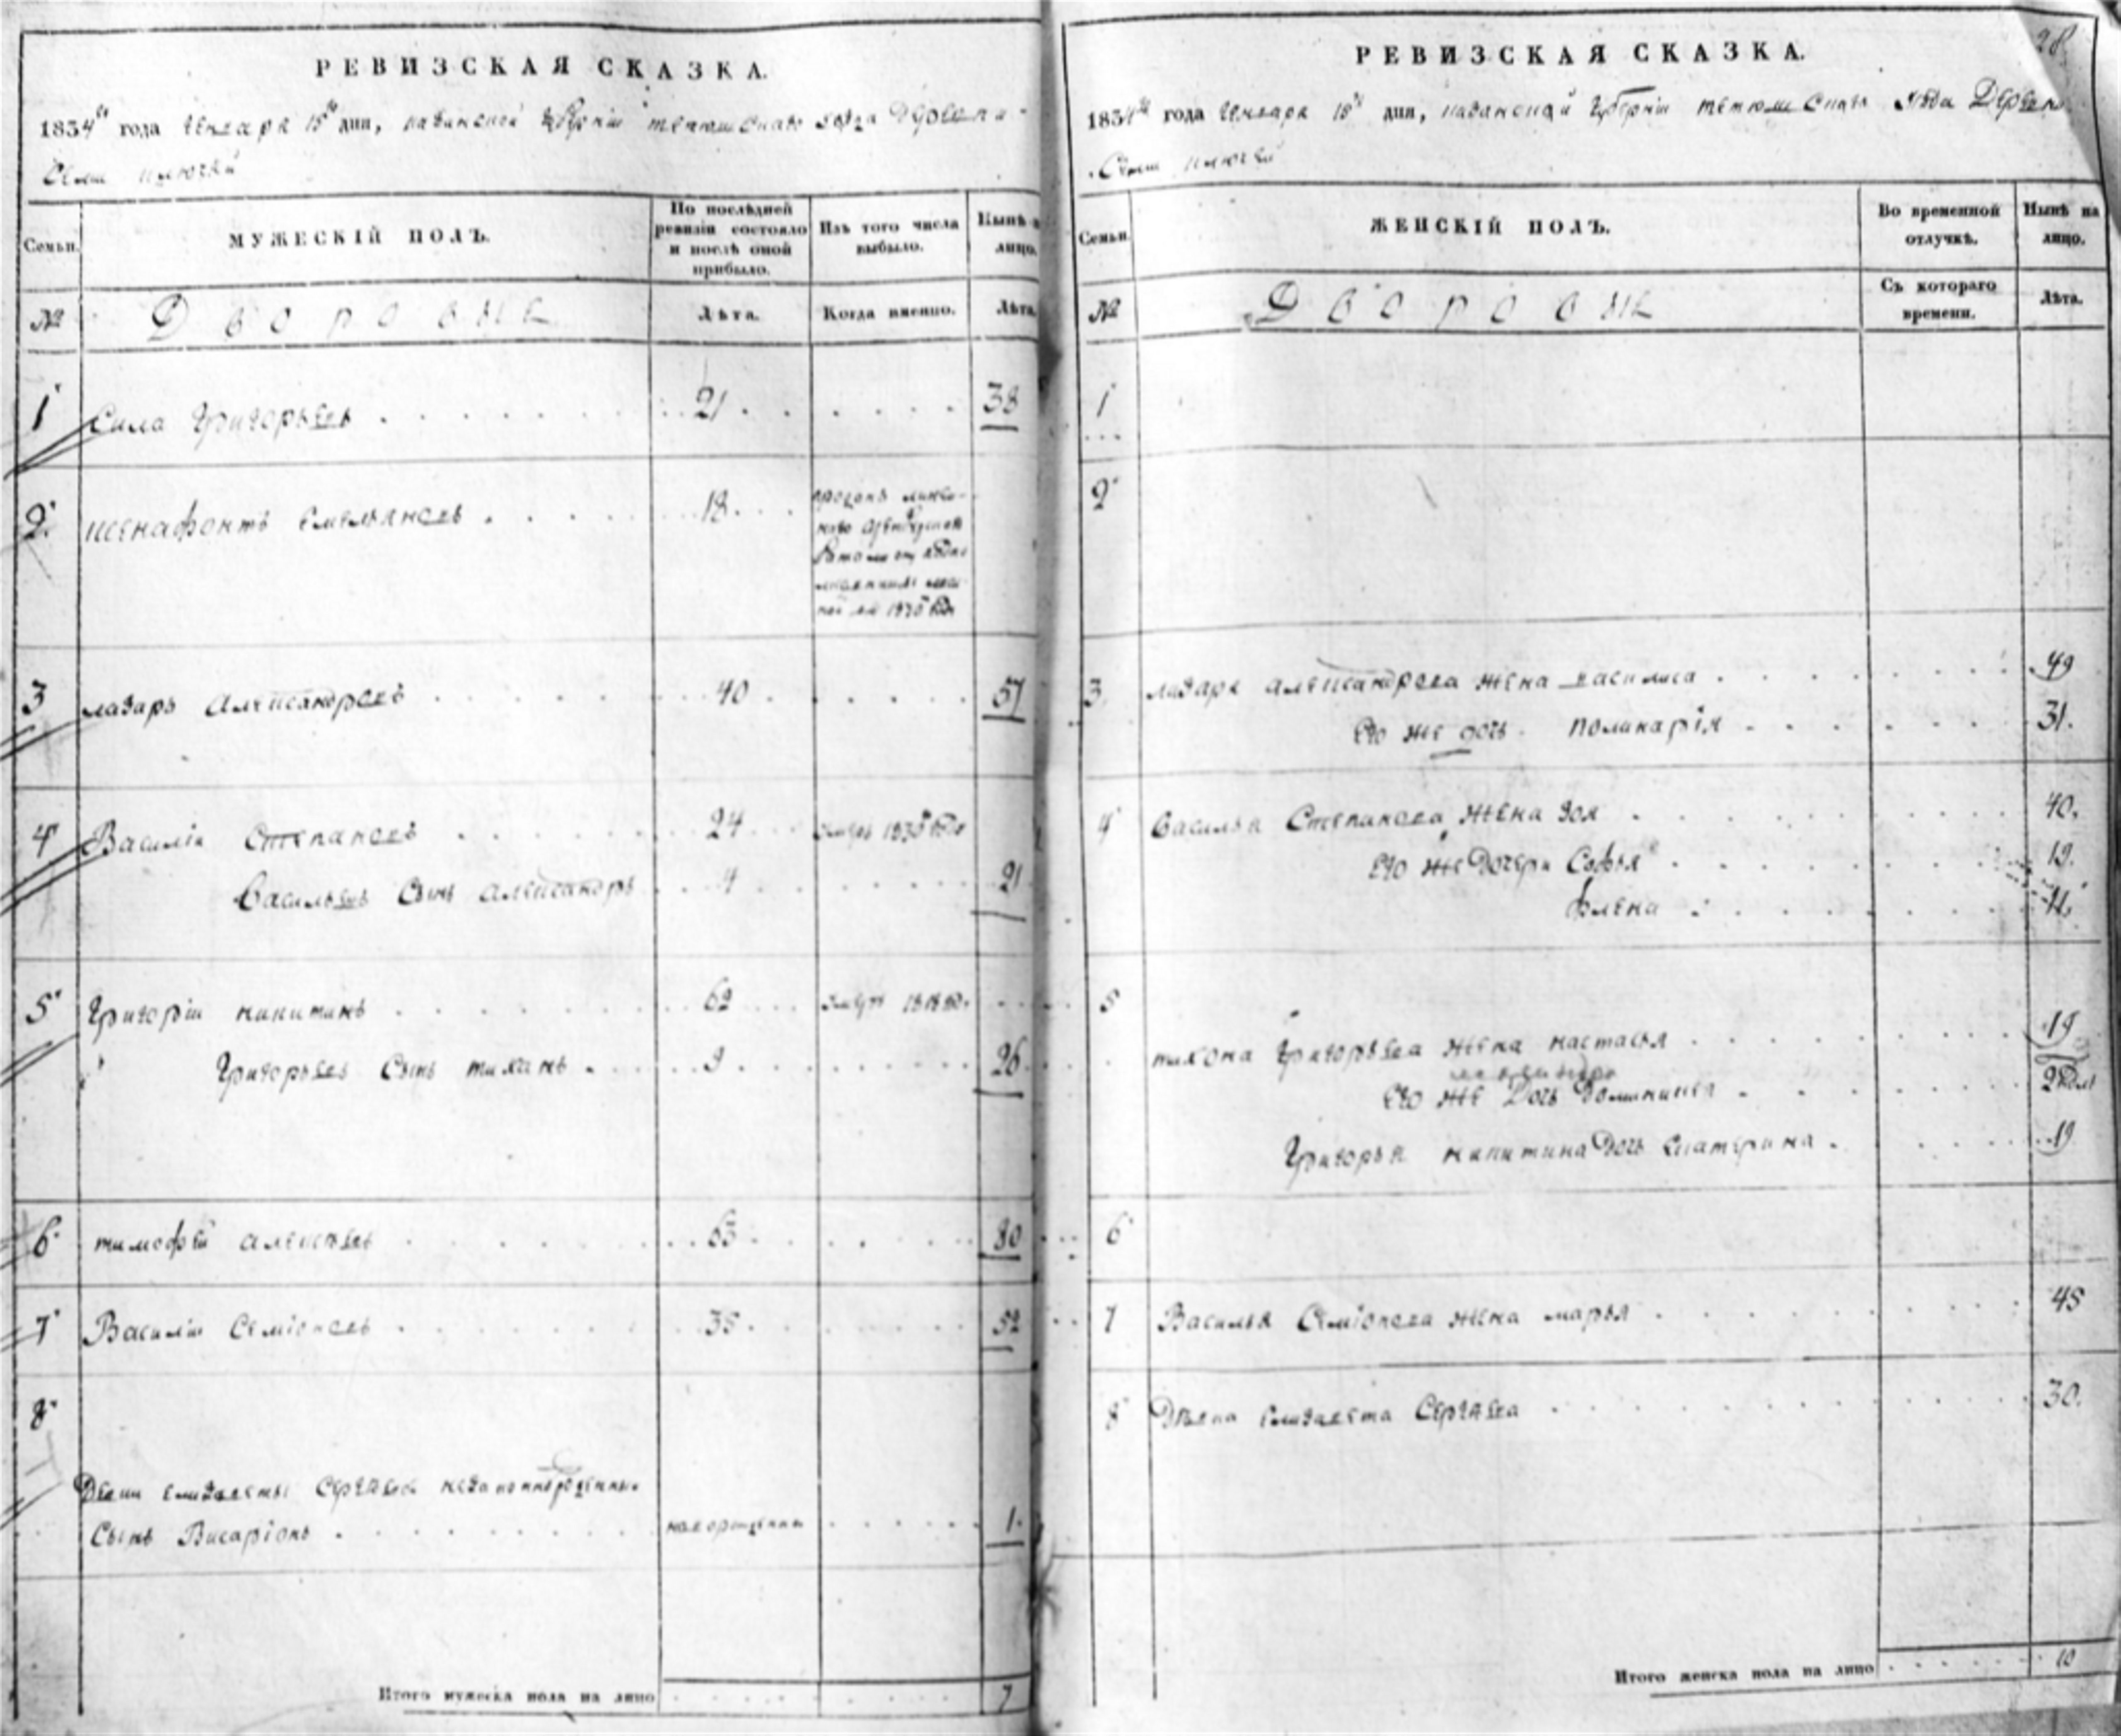 РЕВИЗСКАЯ СКАЗКА.
1834го года Генваря 15го дня, казанской губерніи тетюшскаго уезда Деревни
Семи ключей
Семьи.
МУЖЕСКІЙ ПОЛЪ.
По послѣдней ревизіи состояло и послѣ оной прибыло.
Изъ того числа выбыло.
Нынѣ на лицо.
№
Дворовые
Лѣта.
Когда именно.
Лѣта.
1 Сила Григорьевъ 21 38
2 ксенафонтъ емельяновъ 18 1830 года
3 лазарь Александровъ 40 57
4 Василіи Степановъ 24 умеръ 1830 года
Васильевъ Сынъ александръ 4 21
5 Григоріи никитинъ 62 умеръ 1818
Григорьевъ Сынъ тиханъ 9 26
6 тимофей алексѣевъ 63 80
7 Василіи Семіоновъ 35 52
8
Девки елизаветы Сергѣевой незаконнорожденный
Сынъ Висаріонъ новорожденны 1
Итого мужеска пола на лицо 7
28
РЕВИЗСКАЯ СКАЗКА.
1834го года Генваря 15го дня, казанской губерніи тетюшскаго уезда Деревни
Семи ключей
Семьи.
ЖЕНСКІЙ ПОЛЪ.
Во временной отлучкѣ.
Нынѣ на лицо.
№
Дворовые
Съ котораго времени.
Лѣта.
1
2
3 лазаря александрова жена василиса 49
Его же дочь поликарія 31.
4 Василья Степанова жена зоя 40.
Его же дочери Софья 19.
Елена 11.
5
тихона Григорьева жена настасья 19
Его же Дочь 2
Григорья никитина Дочь екатерина 19
6
7 Василья Семіонова жена марья 45
8 Дѣвка елизавета Сергѣева 30.
Итого женска пола на лицо 10